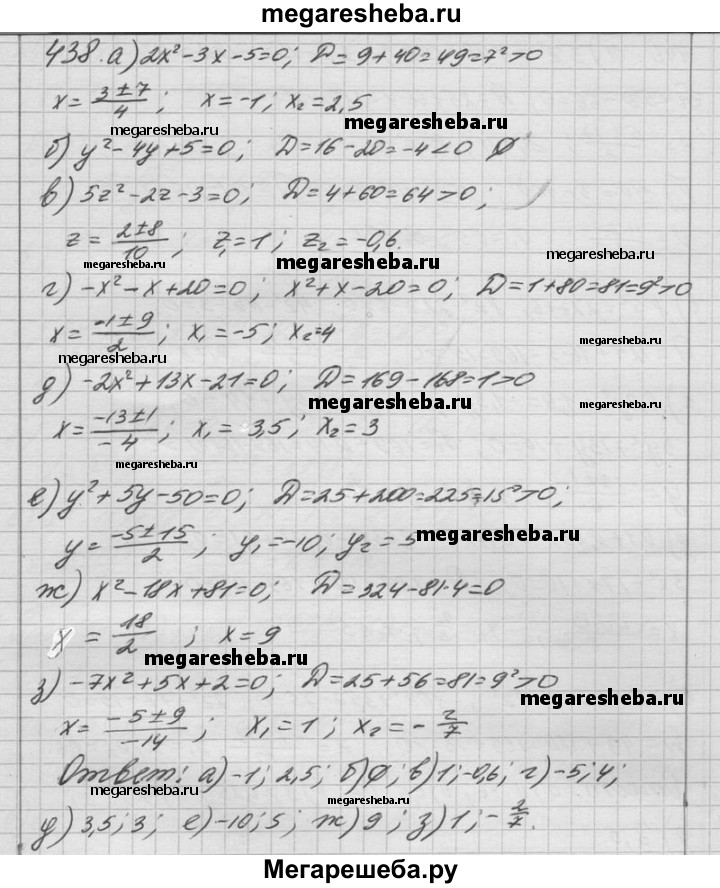 megaresheba.ru
438. а) 2x² - 3x - 5 = 0; D = 9 + 40 = 49 = 7² > 0
x = (3 ± 7)/4; x = -1; x₂ = 2,5
megaresheba.ru megaresheba.ru
б) y² - 4y + 5 = 0; D = 16 - 20 = -4 < 0 ∅
megaresheba.ru
в) 5z² - 2z - 3 = 0; D = 4 + 60 = 64 > 0;
z = (2 ± 8)/10; z₁ = 1; z₂ = -0,6.
megaresheba.ru megaresheba.ru
г) -x² - x + 20 = 0; x² + x - 20 = 0; D = 1 + 80 = 81 = 9² > 0
x = (-1 ± 9)/2; x₁ = -5; x₂ = 4
megaresheba.ru megaresheba.ru
д) -2x² + 13x - 21 = 0; D = 169 - 168 = 1 > 0
megaresheba.ru megaresheba.ru
x = (-13 ± 1)/-4; x₁ = 3,5; x₂ = 3
megaresheba.ru
е) y² + 5y - 50 = 0; D = 25 + 200 = 225 = 15² > 0;
y = (-5 ± 15)/2; y₁ = -10; y₂ = 5
megaresheba.ru
ж) x² - 18x + 81 = 0; D = 324 - 81·4 = 0
x = 18/2; x = 9
megaresheba.ru
з) -7x² + 5x + 2 = 0; D = 25 + 56 = 81 = 9² > 0
megaresheba.ru
x = (-5 ± 9)/-14; x₁ = 1; x₂ = -2/7
Ответ: а) -1; 2,5; б) ∅; в) 1; -0,6; г) -5; 4;
megaresheba.ru megaresheba.ru
д) 3,5; 3; е) -10; 5; ж) 9; з) 1; -2/7.
Мегарешеба.ру